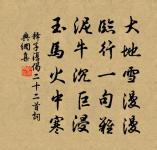 大地雪漫漫
臨行一句難
泥牛沉巨浸
玉馬火中寒
釋子淳偈二十二首詞
典網集